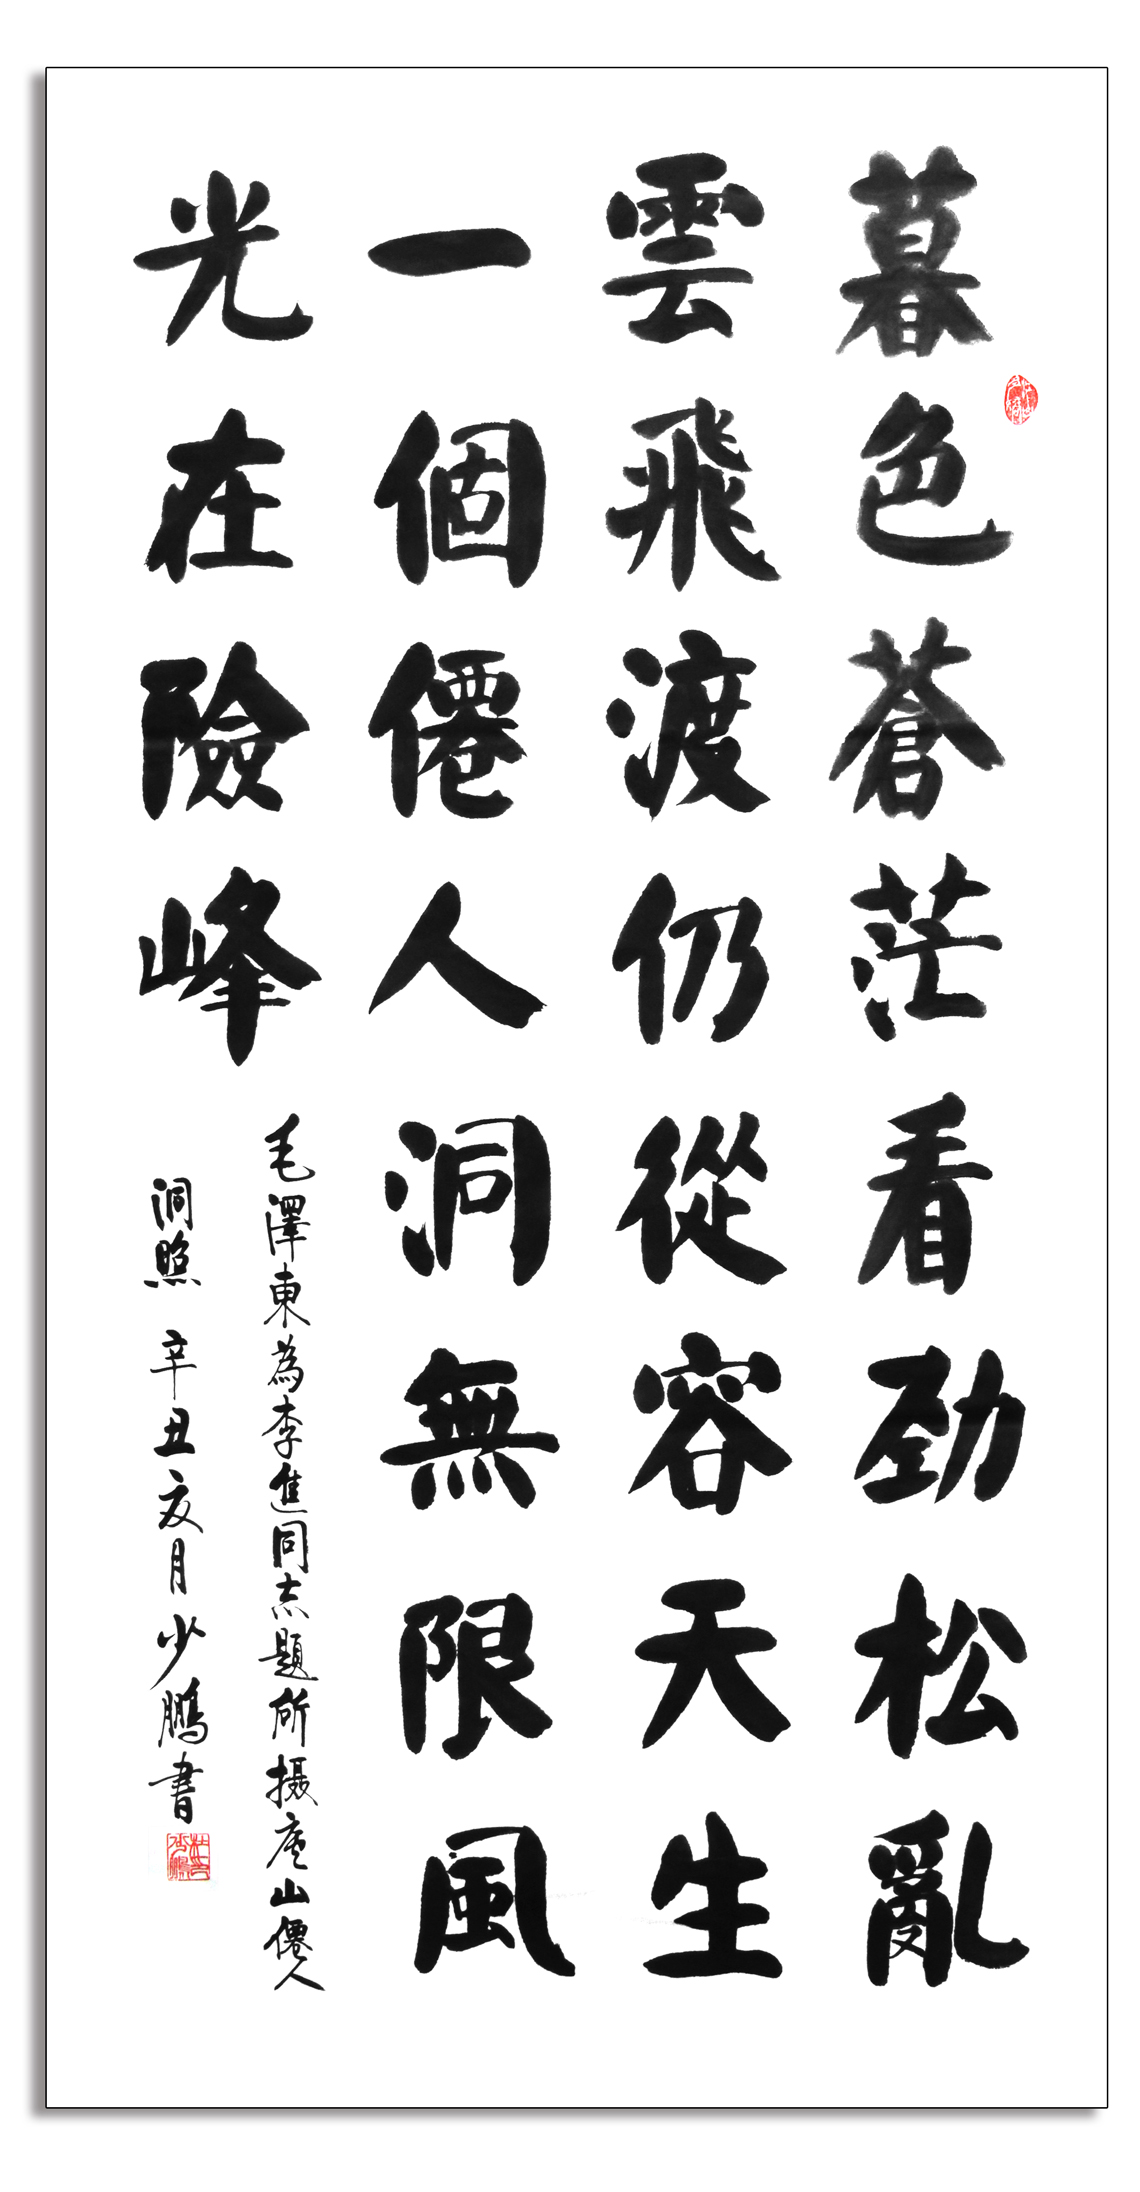 暮色蒼茫看劲松亂
雲飛渡仍從容天生
一個僊人洞無限風
光在險峰
毛澤東為李進同志題所摄庐山僊人
洞照 辛丑亥月少鵬書